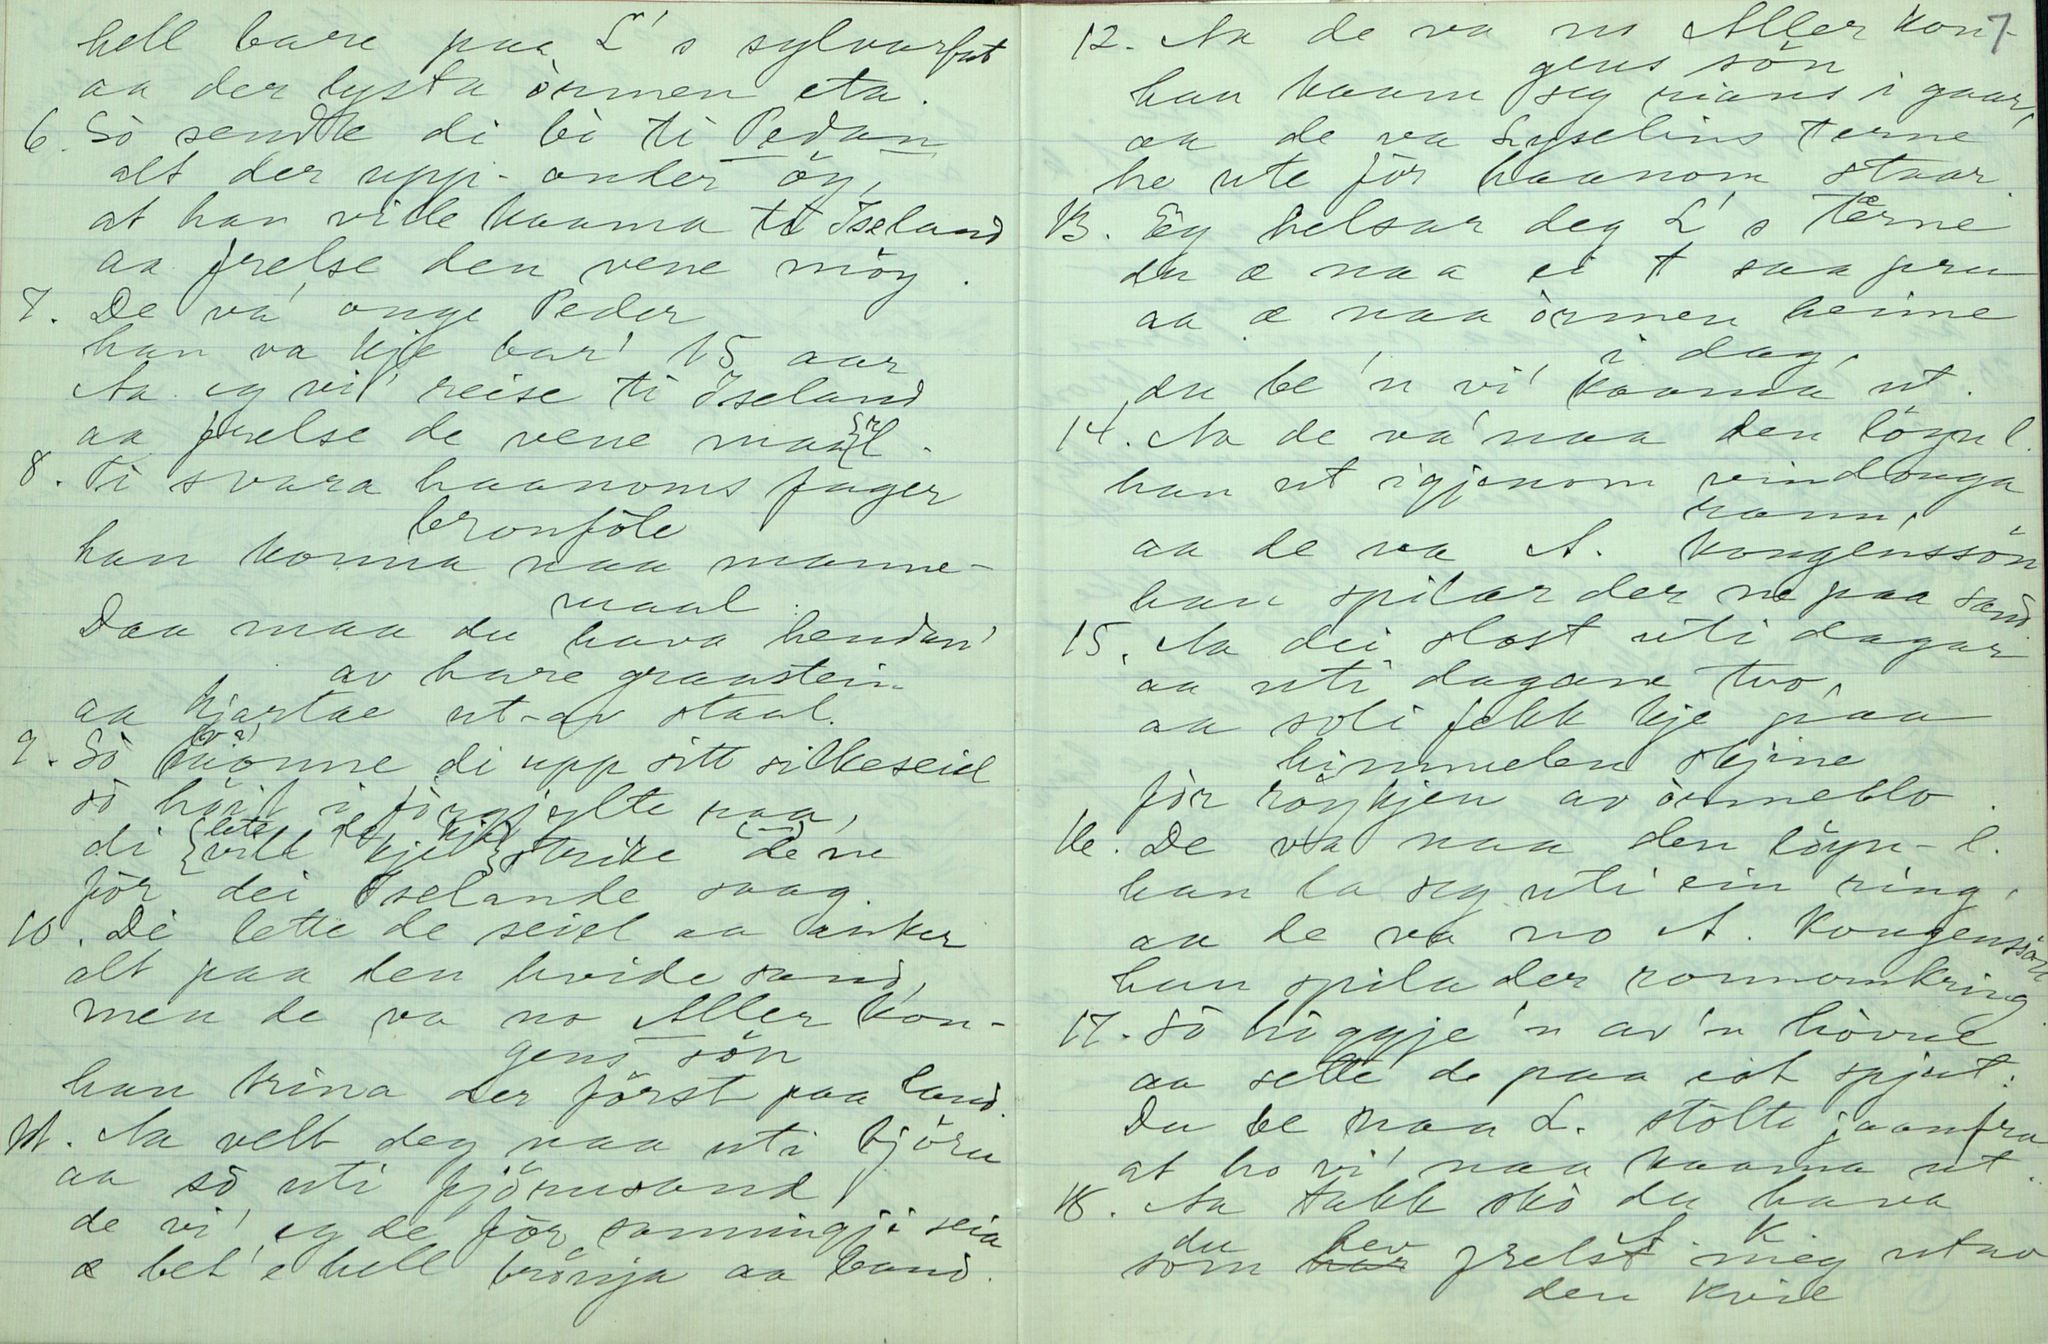 hell bare paa L's sylvarfat
aa der lysta òrmen eta.
6. Sò sendte di bò ti Pedar
alt der upp-onder öy,
at han vilde kaama ti Iseland
aa frelse den vene möy.
7. De va' onge Peder
han va kje bar' 15 aar
Aa eg vil' reise ti Iseland
aa frelse de vene maal.
8. Ti svara haanoms fager
bronföle
han konna naa manne-
maal.
Daa maa du hava hendan'
av hare graastein
aa hjartae ut-av staal.
9. Sò (va) vonne di upp sitt silkeseiel
sò högt i förgjylte raa,
di {vill kje} strike (de) ne
för dei Iselande saag.
10. Di lette de seiel aa anker
alt paa den hvide sand,
men de va no Aller kon-
gens sön
han trina der först paa land.
11. Aa velt deg naa uti tjöru
aa sò uti fjörusand
de vi' eg de för sanningji seia
æ bet'e hell brönja aa band.
7
12. Aa de va no Aller kon-
gens sön
han kaam seg rians i gaar,
aa de va Lyselins terne
ho ute för haanom staar.
13. Eg helsar deg L's tærne
du æ naa ei t saa pru
aa æ naa òrmen heime
i dag,
du be 'n vi' kaama' ut.
14. Aa de va' naa den löyn l.
han ut igjonom vindouga
rann,
aa de va A. kongenssön
han spilar der ne paa sand.
15. Aa dei slost uti dagar
aa uti dagane tvo,
aa soli fekk kje paa
himmelen skjine
för röykjen av òrmeblo.
16. De va naa den löyn-l.
han la seg uti ein ring,
aa de va no A. Kongenssön
han spila der ronnomkring.
17. Sò höggje 'n av 'n hövue
aa sette de paa eit spjut:
Du be naa L. stolte jaanfru
at ho vi' naa kaama ut.
18. Aa takk skò du hava
A K
som du hev har frelst meg utav
den kvil